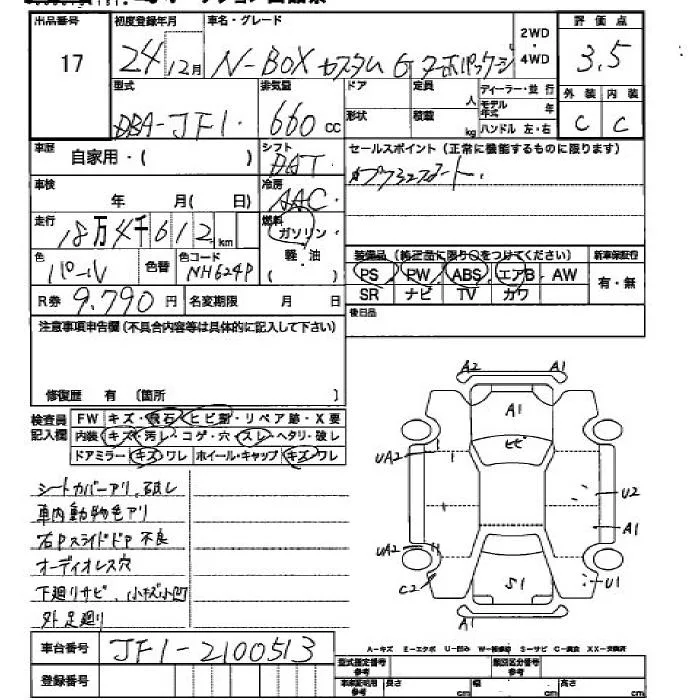 出品番号
17
初度登録年月
24 12月
車名・グレード
N-BOX カスタム G ターボパッケージ
2WD
・
4WD
評価点
3.5
外装 内装
C C
型式
DBA-JF1
排気量
660 cc
ドア
形状
定員
人
積載
kg
ディーラー・並行
モデル年式 年
ハンドル 左・右
車歴
自家用・( )
シフト
DAT
セールスポイント (正常に機能するものに限ります)
車検
年 月( 日)
冷房
AAC
走行
18万4千612km
燃料
ガソリン・
軽・油
( )
色
パール
色替
色コード
NH624P
装備品 (純正品に限り○をつけてください)
PS PW ABS エアB・AW
SR ナビ TV カワ
新車保証行
有・無
R券 9,790円
名変期限 月 日
後日品
注意事項申告欄(不具合内容等は具体的に記入して下さい)
修復歴 有 〔箇所 〕
検査員
記入欄
FW キズ・飛石・ヒビ割・リペア跡・X要
内装 キズ・汚レ・コゲ・穴・スレ・ヘタリ・破レ
ドアミラー キズ・ワレ ホイール・キャップ キズ・ワレ
シートカバーアリ、破レ
車内動物毛アリ
右PスライドドアP不良
オーディオレス穴
下廻リサビ、小キズ小凹
外足廻リ
A2 A1
A1
ヒビ
UA2
U2
A1
UA2
C2
U1
S1
A1
車台番号
JF1-2100513
登録番号
A-キズ E-エクボ U-凹み W-補修跡 S-サビ C-腐食 XX-交換済
型式指定番号
参考
類別区分番号
参考
車庫証明用
参考
長さ cm
幅 cm
高さ cm